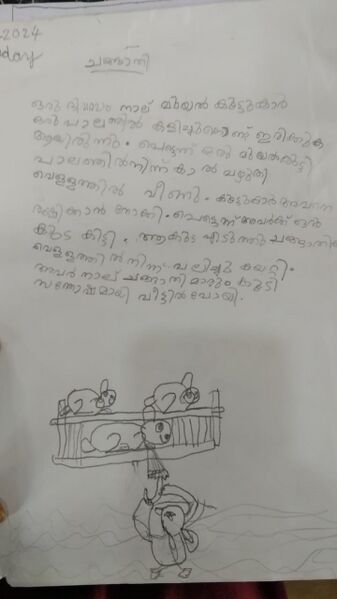 2024
day
ചങ്ങാതി
ഒരു ദിവസം നാല് മുയൽ കൂട്ടുകാർ
ഒരു പാലത്തിൽ കളിച്ചുകൊണ്ട് ഇരിക്കുക
ആയിരുന്നു. പെട്ടെന്ന് ഒരു മുയൽകുട്ടി
പാലത്തിൽനിന്ന് കാൽ വഴുതി
വെള്ളത്തിൽ വീണു. കൂട്ടുകാർ അവനെ
രക്ഷിക്കാൻ നോക്കി. പെട്ടെന്ന് അവർക്ക് ഒരു
കുട കിട്ടി. ആകുട എടുത്തു ചങ്ങാതിയെ
വെള്ളത്തിൽ നിന്ന് വലിച്ചു കയറ്റി.
അവർ നാല് ചങ്ങാതിമാരും കൂടി
സന്തോഷമായി വീട്ടിൽ പോയി.